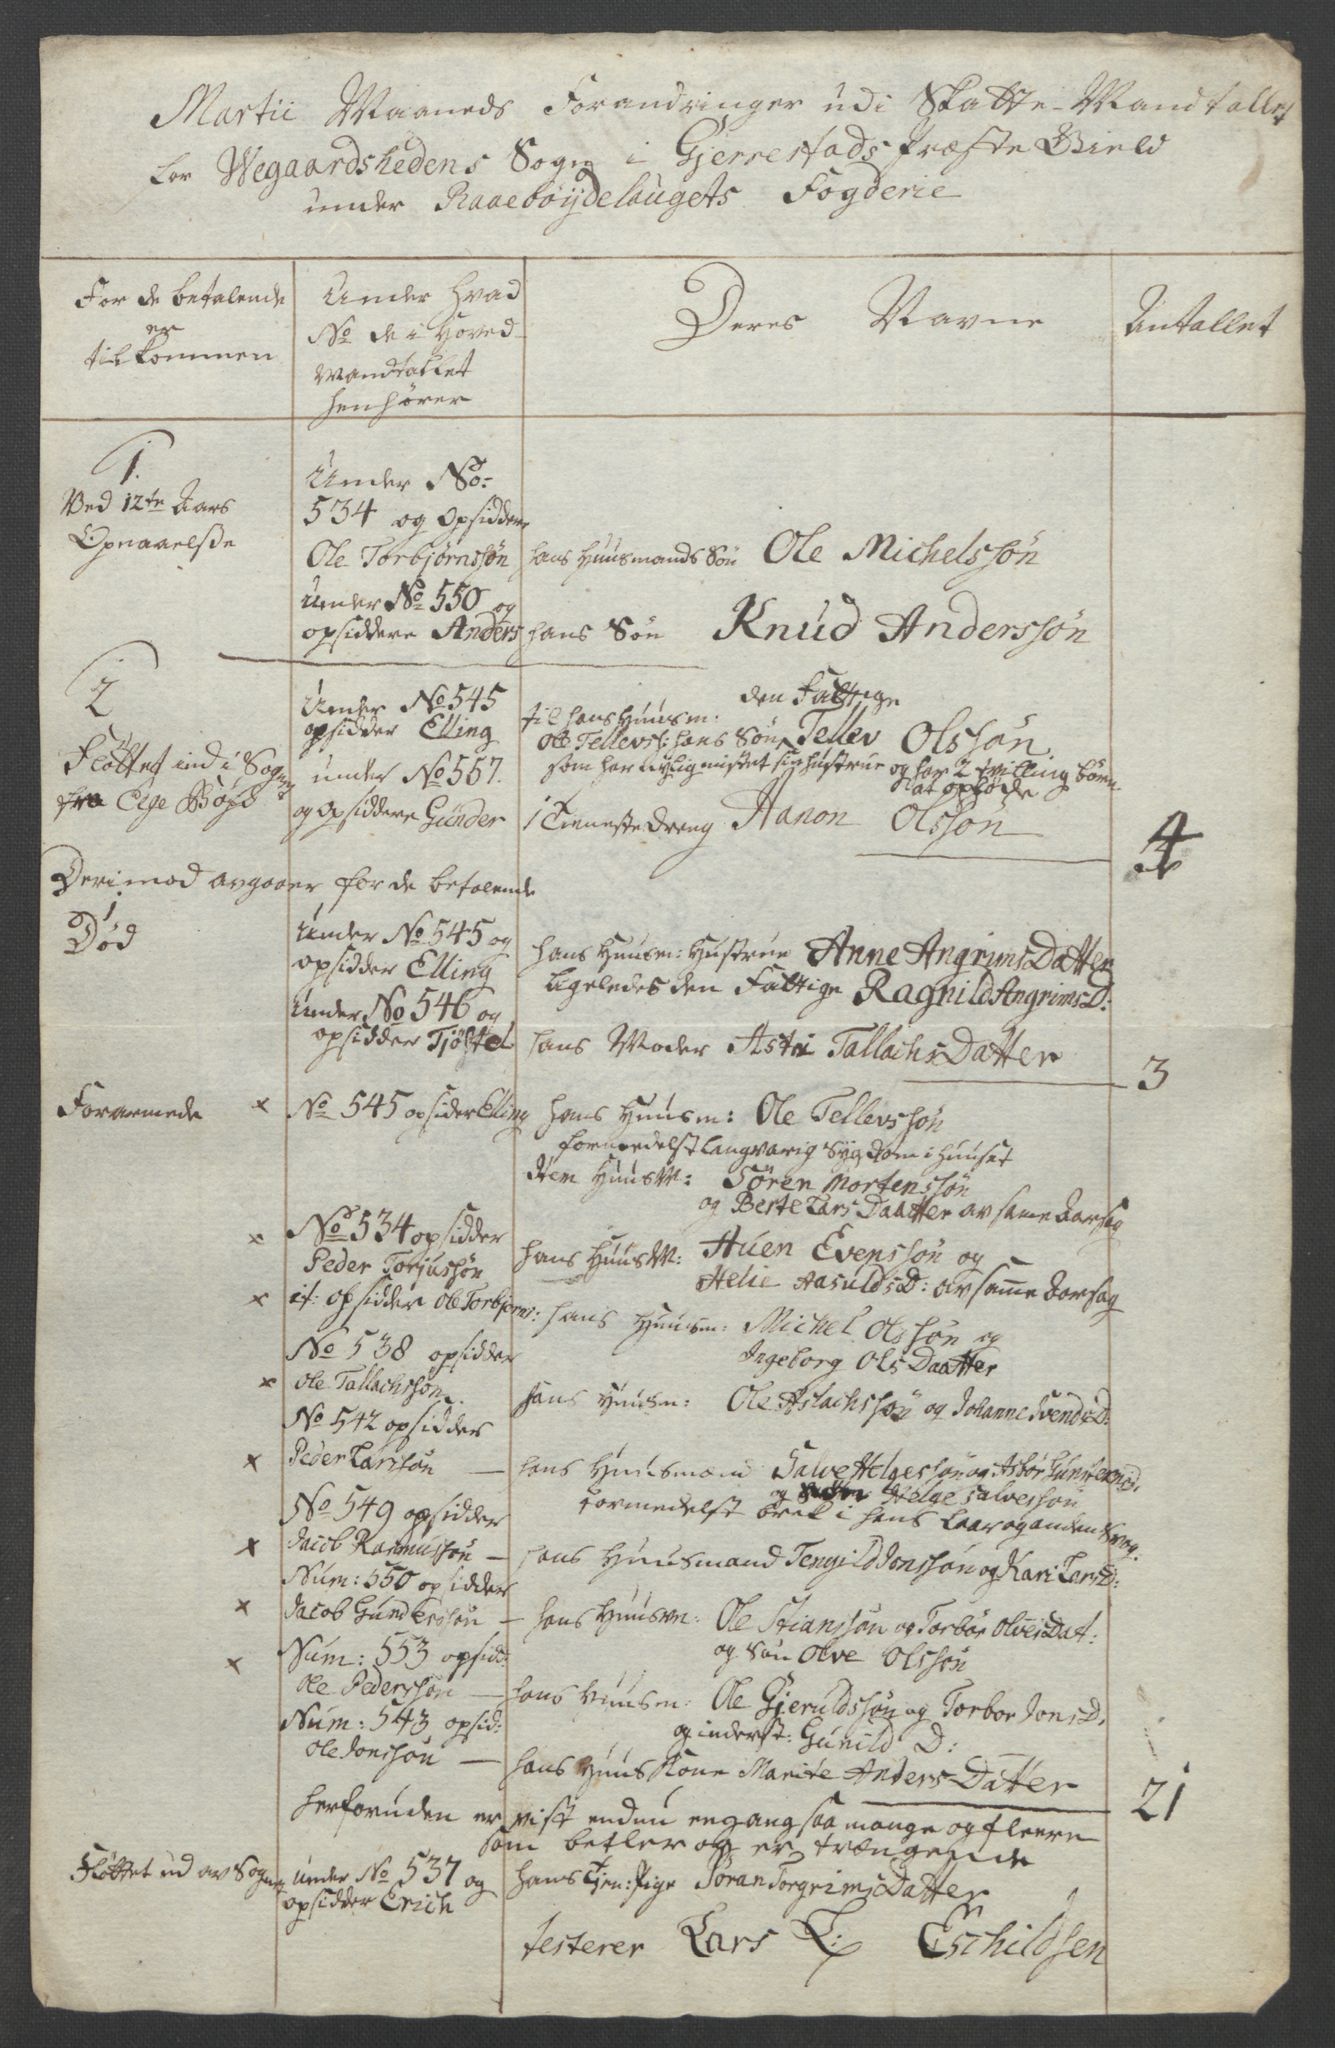 Martii Maaneds Forandringer udi Skatte-Mandtallet
for Wegaardshedens Sogn i Gjerrestads Præste Gield
under Raaebøydelaugets Fogderie
For de betalende
er
tilkommen
Under hvad
No de i Hoved
Mandtallet
henhører
Deres Navne
Antallet
1.
Ved 12te Aars
Opnaaelsse
Under No:
534 og Opsidder
Ole Torbjørnssøn
hans Huusmands Søn Ole Michelssøn
Under No 550 og
opsiddere Anders
hans Søn Knud Anderssøn
2
Fløttet ind i Sognet
fra Eige Bøyd
Under No 545
opsidder Elling
den Fattige
til hans Huusm:
Ole Tellevss: hans Søn Tellev Olssøn
som har nylig mistet sin hustrue og har 2 tvilling børn
at opføde
under No 557.
og Opsiddere Gunder
1 Tieneste Dreng Aanon Olssøn
4
Derimod avgaaer for de betalende
1
Død
Under No 545 og
opsidder Elling
hans Huusm: Hustrue Anne Angrims Datter
ligeledes den Fattige Ragnild Angrims D:
Under No 546 og
opsidder Tjøstel
hans Moder Astri Tallachs Datter
3
Forarmede
x No 545 opsider Elling
hans Huusm: Ole Tellevssøn
formedelst langvarig Sygdom i Huuset
Item HuusM: Søren Mortenssøn
og Berte Lars Daatter av same Aarsag
x No 534 opsidder
Peder Torjussøn
hans HuusM: Auen Evenssøn og
Helie Aasulds D: av samme Aarsag
x it: opsidder Ole Torbjørns:
hans Huusm: Michel Olssøn og
Ingeborg Ols Daatter
No 538 opsidder
x Ole Tallachssøn
hans Huusm: Ole Aslachssøn og Johanne Svends D:
No 542 opsidder
x Peder Larssøn —
hans Huusmand Salve Helgessøn og Asbør Gunders D.
og Helge Salvessøn
formedelst bræk i hans Laar og anden Svag.
No 549 opsidder
x Jacob Rasmussøn —
hans Huusmand Tengild Jonssøn og Kari Lars D:
Num: 550 opsidder
x Jacob Gunderssøn —
hans Huusm: Ole Stianssøn og Torbør Olves Dat:
og Søn Olve Olssøn
x Num: 553 opsid:
Ole Pederssøn —
hans Huusm: Ole Gjeruldssøn og Torbor Jons D.
og inderst: Gunild D:
Num: 543 opsid:
Ole Jonssøn —
hans Huus Kone Marite Anders Datter
21
herforuden er vist endnu engang saa mange og fleere
som betler og er trængende
Fløttet ud av Sognet
under No 537 og
opsidder Erich
hans Tien: Pige Søran Torgrims Datter
testerer Lars L: Eschildsen